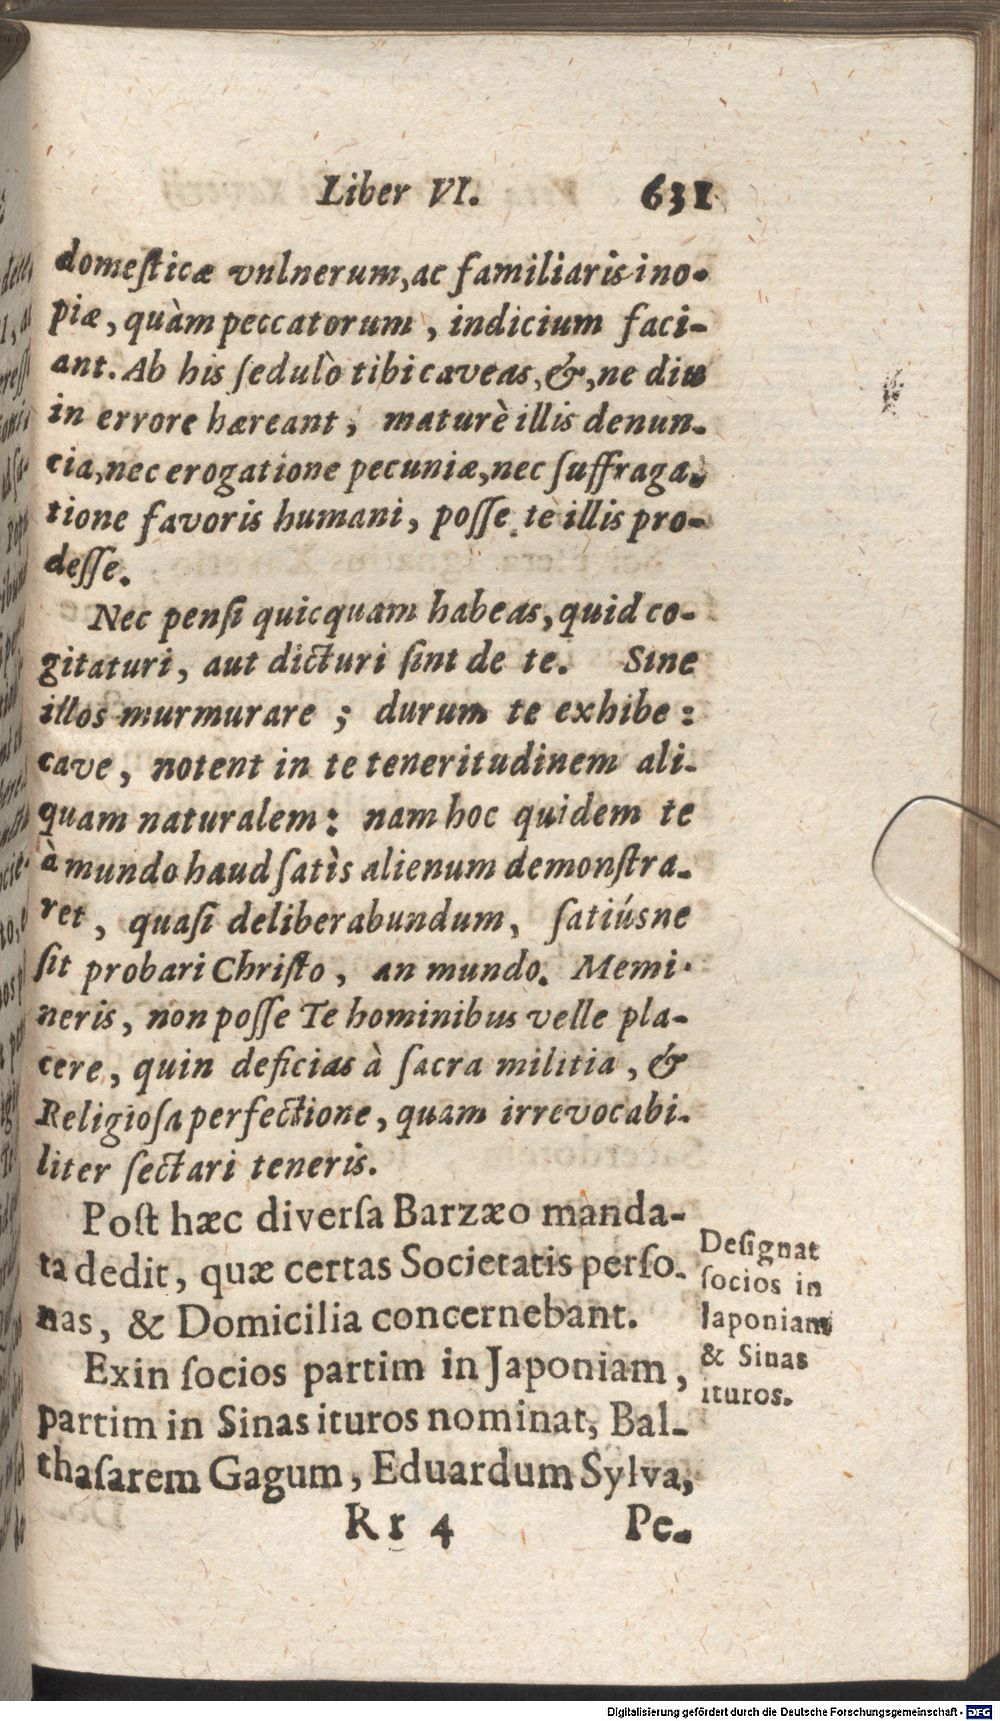 Liber VI. 631
domeſticæ vnlnerum, ac familiaris ino-
piæ, quàm peccatorum, indicium faci-
ant. Ab his ſedulò tibi caveas, &, ne diu
in errore hæreant, maturè illis denun-
cia, nec erogatione pecuniæ, nec ſuffraga-
tione favoris humani, poſſe te illis pro-
deſſe.
Nec penſi quicquam habeas, quid co-
gitaturi, aut dicturi ſint de te. Sine
illos murmurare; durum te exhibe:
cave, notent in te teneritudinem ali-
quam naturalem: nam hoc quidem te
à mundo haud ſatìs alienum demonſtra-
ret, quaſi deliberabundum, ſatiúsne
ſit probari Chriſto, an mundo. Memi-
neris, non poſſe Te hominibus velle pla-
cere, quin deficias à ſacra militia, &
Religioſa perfectione, quam irrevocabi-
liter ſectari teneris.
Poſt hæc diverſa Barzæo manda-
ta dedit, quæ certas Societatis perſo-
nas, & Domicilia concernebant.
Exin ſocios partim in Japoniam,
partim in Sinas ituros nominat, Bal-
thaſarem Gagum, Eduardum Sylva,
Deſignat
ſocios in
Iaponiam
& Sinas
ituros.
Rr 4 Pe-
Digitalisierung gefördert durch die Deutsche Forschungsgemeinschaft - DFG